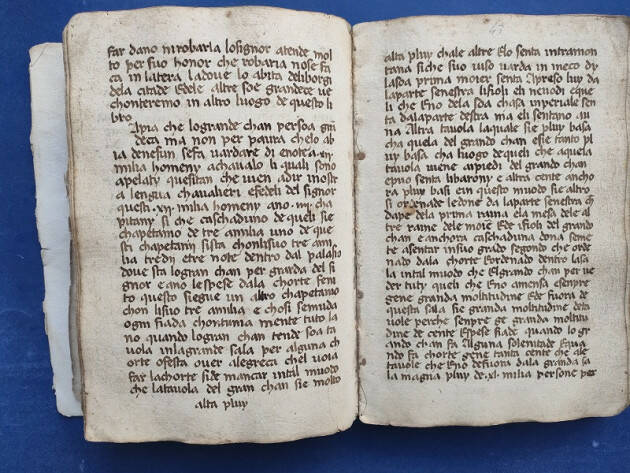 far dano nirobarla losignor atende mol
to per suo honor che robaria nose fa
ca in latera ladove lo abita deliborgi
dela citade Edele altre soe grandece ve
chonteremo in altro luogo de questo li
bro
Apia che logrande chan persoa gran
deca ma non per paura chelo ab
ia denesun sefa vardar di enote a .xij.
milia homeny achavalo li quali sono
apelaty quesitan che vien adir nost
a lengua chavalieri efedeli del signor
questi .xij. milia homeny ano .iiij. cha
pitany si che caschaduno de queli sie
chapetamo de tre amilia uno de que
sti chapetany sista chonlisuo tre am
ilia tredi etre note dentro dal palasio
dove sta logran chan per grarda del si
gnor e ano lespese dala chorte feni
to questo siegue un altro chapetamo
chon lisuo tre amilia e chosi semuda
ogni fiada chontinia mente tuto la
no quando logran chan tende soa ta
vola inlagrande sala per alguna ch
orte ofesta over alegreca chel voia
far lachorte side mancar intal muodo
che latavola del gran chan sie molto
alta pluy
alta pluy chale altre Elo senta intramon
tana siche suo viso varda in meco dy
lasoa prima moier senta Apreso luy da
laparte senestra lifioli eli nevodi e que
li che Eno dela soa chasa inperiale sen
ta dalaparte destra ma eli sentano in
una Altra tavola laquale sie pluy basa
cha quela del grande chan esie tanto pl
uy basa cha luogo dequeli che aquela
tavola viene aipiedi del grande chan
epuo senta libarony e altra cente ancho
ra pluy basi ein questo muodo sie altro
si ordenade ledone da laparte senestra ch
dape dela prima raina ela mesa dele al
tre raine dele moier Ede ifioli del grande
chan e anchora caschaduna dona seme
te asentar insuo grado segondo che ordi
nado dala chorte Eordenado dentro lasa
la intal muodo che Elgrando chan per ve
der tuty queli che Eno amensa esempre
gene granda moltitudine Ede fuora de
questa sala sie granda moltitudine deta
vole perche senpre ge granda moltitu
dine de cente Espese fiade quando lo gr
ando chan fa Alguna solenitade Equan
do fa chorte gene tanta cente che ale
tavole che Eno defuora dala granda sa
la magna pluy de .xl. milia persone per